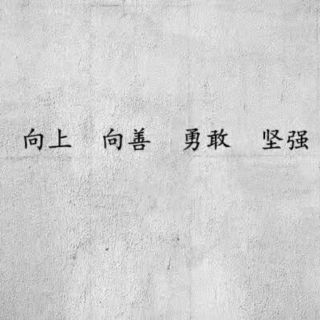 向上 向善 勇敢 坚强